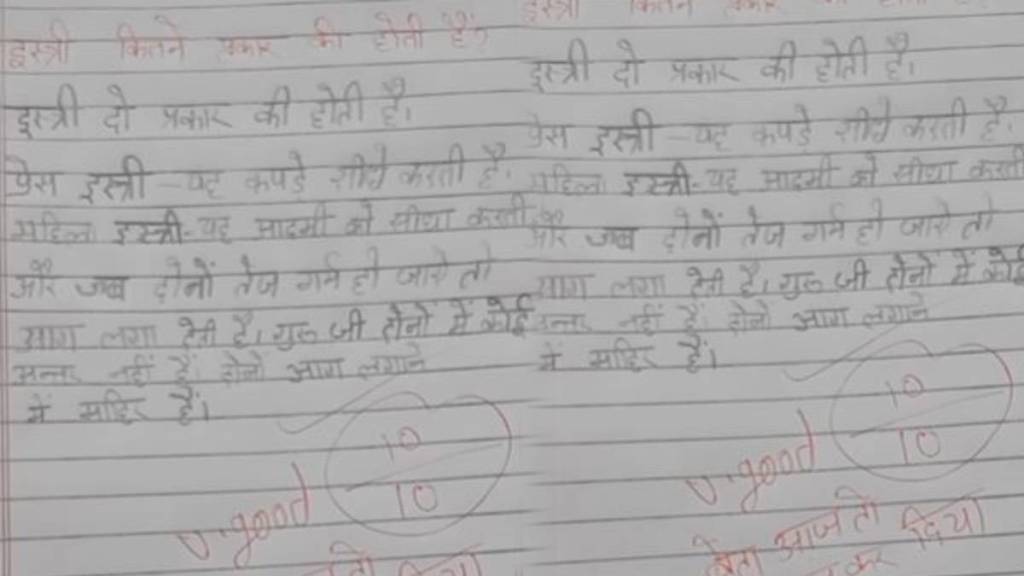 इस्त्री कितने प्रकार की होती है?
इस्त्री दो प्रकार की होती है।
प्रेस इस्त्री - यह कपड़े सीधे करती है।
महिला इस्त्री - यह आदमी को सीधा करती
और जब दोनों तेज गर्म हो जाये तो
आग लगा देती है। गुरु जी दोनों में कोई
अन्तर नहीं है। दोनो आग लगाने
में माहिर हैं।
10
10
v.good
इस्त्री कितने प्रकार
इस्त्री दो प्रकार की होती है।
प्रेस इस्त्री - यह कपड़े सीधे करती है।
महिला इस्त्री - यह आदमी को सीधा करती
और जब दोनों तेज गर्म हो जाये तो
आग लगा देती है। गुरु जी दोनों में कोई
अन्तर नहीं है। दोनो आग लगाने
में माहिर हैं।
10
10
v.good
बेटा आज तो
कर दिया